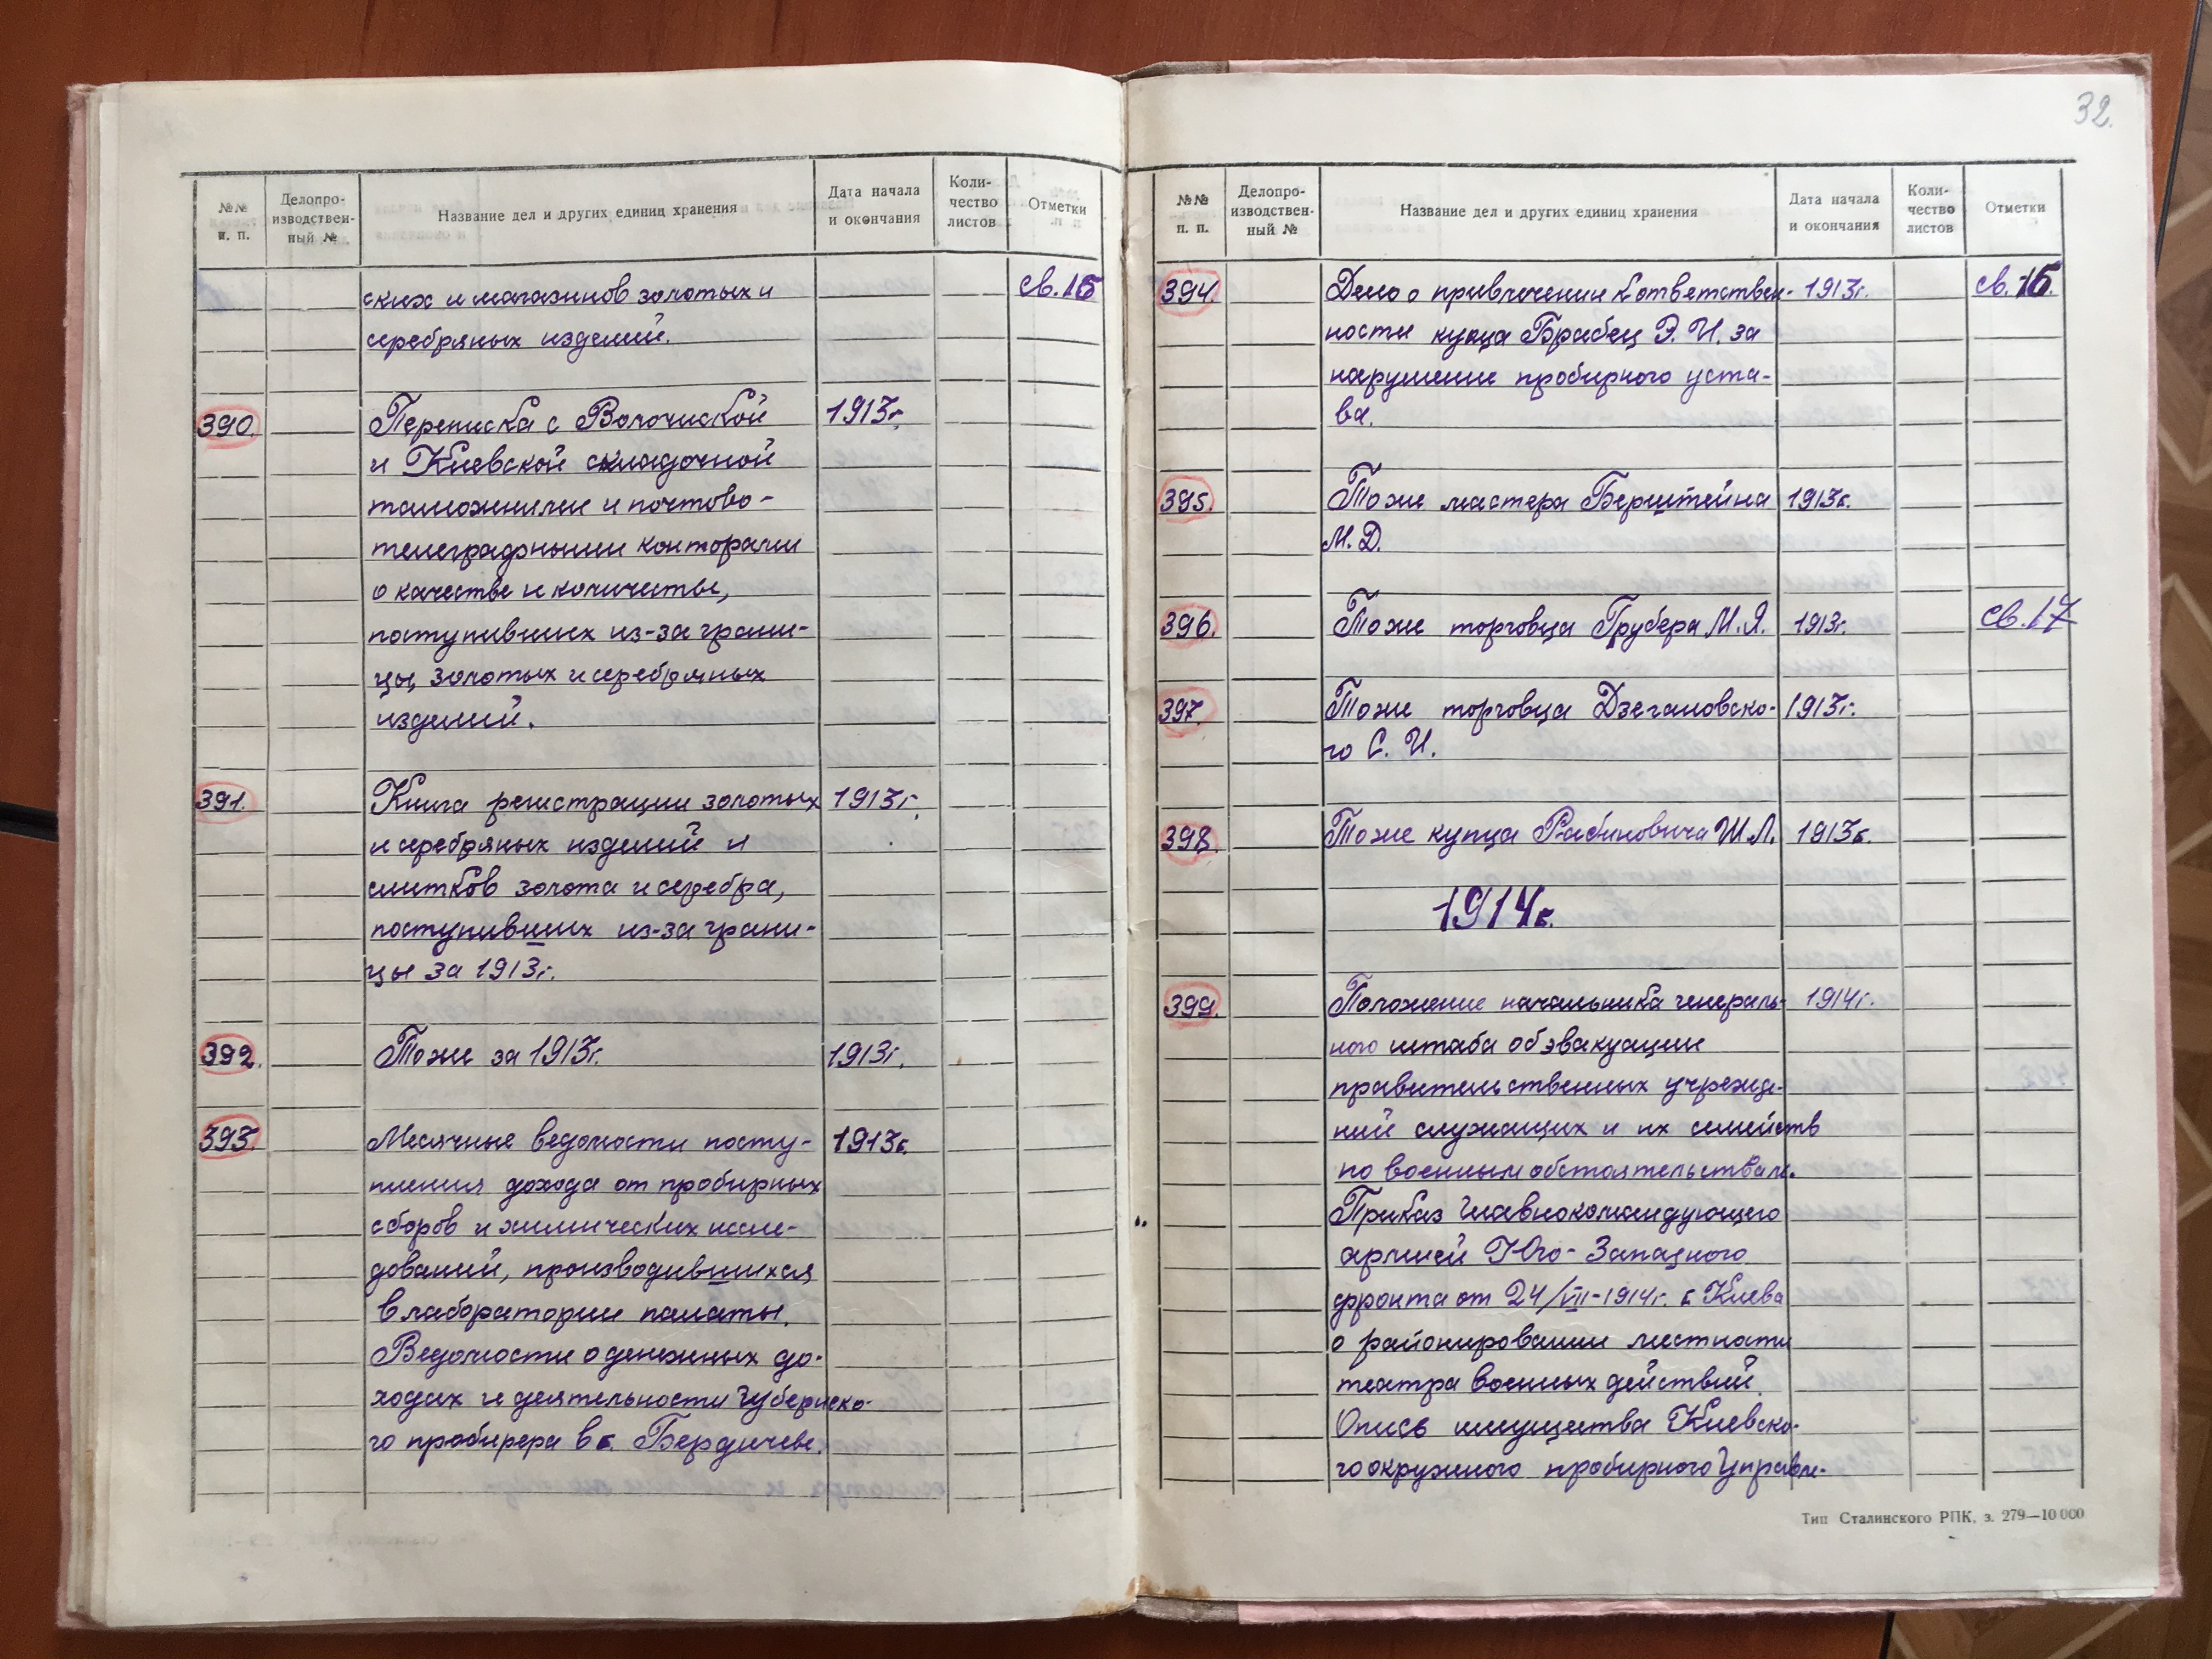 №№ п. п.
Делопро-
изводствен-
ный №
Название дел и других единиц хранения
Дата начала
и окончания
Коли-
чество
листов
Отметки
ских и магазинов золотых и св. 16
серебряных изделий.
390. Переписка с Волочиской 1913г.
и Киевской складочной
таможнями и почтово-
телеграфными конторами
о качестве и количестве,
поступивших из-за грани-
цы, золотых и серебряных
изделий.
391. Книга регистрации золотых 1913г.
и серебряных изделий и
слитков золота и серебра,
поступивших из-за грани-
цы за 1913г.
392. Тоже за 1913г. 1913г.
393. Месячные ведомости посту- 1913г.
пления дохода от пробирных
сборов и химических иссле-
дований, производившихся
в лаборатории палаты.
Ведомости о денежных до-
ходах и деятельности губернско-
го пробирера в г. Бердичеве.
32.
№№
п. п.
Делопро-
изводствен-
ный №
Название дел и других единиц хранения
Дата начала
и окончания
Коли-
чество
листов
Отметки
394. Дело о привлечении к ответствен- 1913г. св. 16.
ности купца Брабец Э. И. за
нарушение пробирного уста-
ва.
395. Тоже мастера Берштейна 1913г.
М. Д.
396. Тоже торговца Грубера М. Я. 1913г. св. 17
397. Тоже торговца Дзегановско- 1913г.
го С. И.
398. Тоже купца Рабиновича Ш. Л. 1913г.
1914г.
399. Положение начальника генераль- 1914г.
ного штаба об эвакуации
правительственных учрежде-
ний служащих и их семейств
по военным обстоятельствам.
Приказ главнокомандующего
армией Юго-Западного
фронта от 24/VII-1914г. г. Киева
о районировании местности
театра военных действий.
Опись имущества Киевско-
го окружного пробирного Управле-
Тип Сталинского РПК, з. 279—10 000